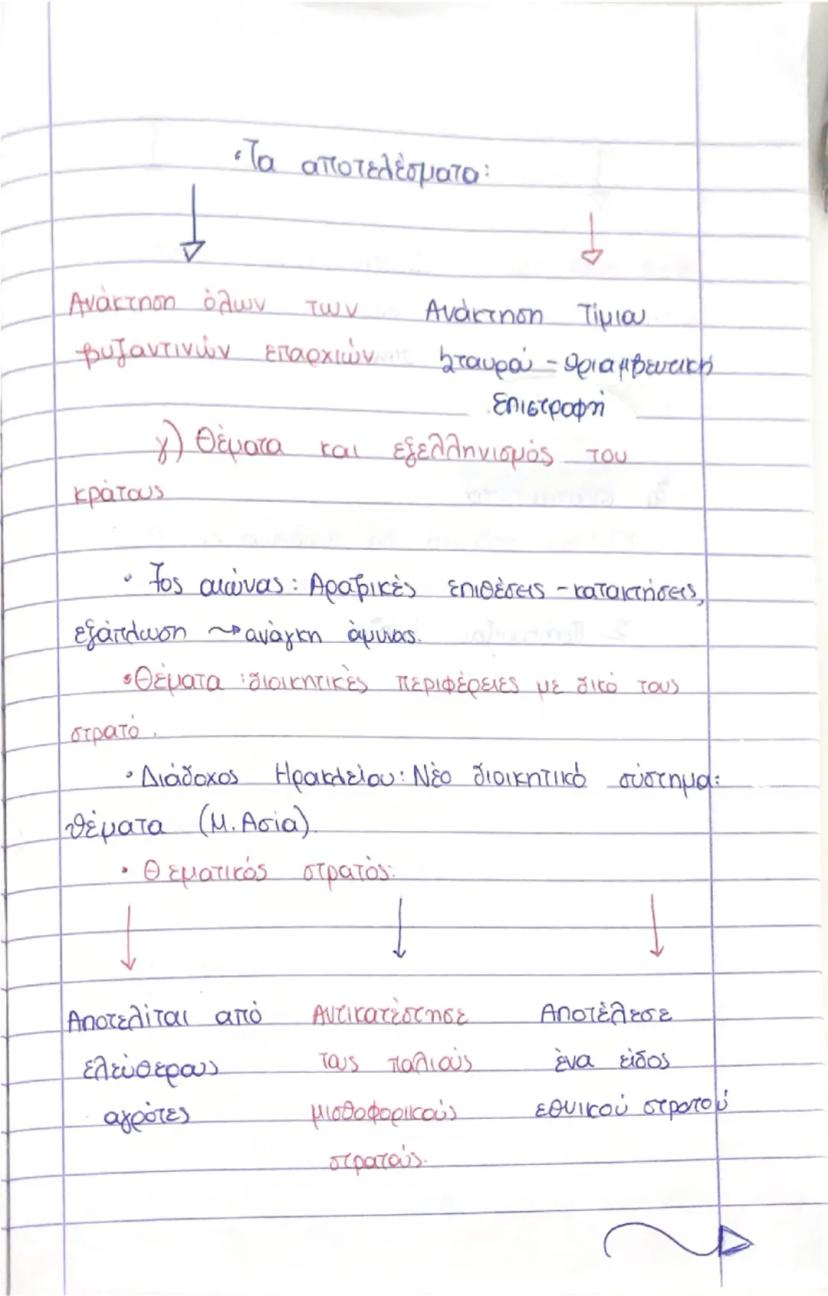 •Τα αποτελέσματα:
Ανάκτηση όλων των
βυζαντινών επαρχιών
Ανάκτηση Τίμιου
Σταυρού - θριαμβευτική
επιστροφή
γ) Θέματα και εξελληνισμός του
κράτους
• 7ος αιώνας: Αραβικές επιθέσεις - κατακτήσεις,
εξάπλωση ⇝ ανάγκη άμυνας.
•Θέματα :διοικητικές περιφέρειες με δικό τους
στρατό.
•Διάδοχος Ηρακλείου: Νέο διοικητικό σύστημα:
θέματα (Μ. Ασία).
• Θεματικός στρατός:
Αποτελίται από
ελεύθερους
αγρότες
Αντικατέστησε
τους παλιούς
μισθοφορικούς
στρατούς.
Αποτέλεσε
ένα είδος
εθνικού στρατού